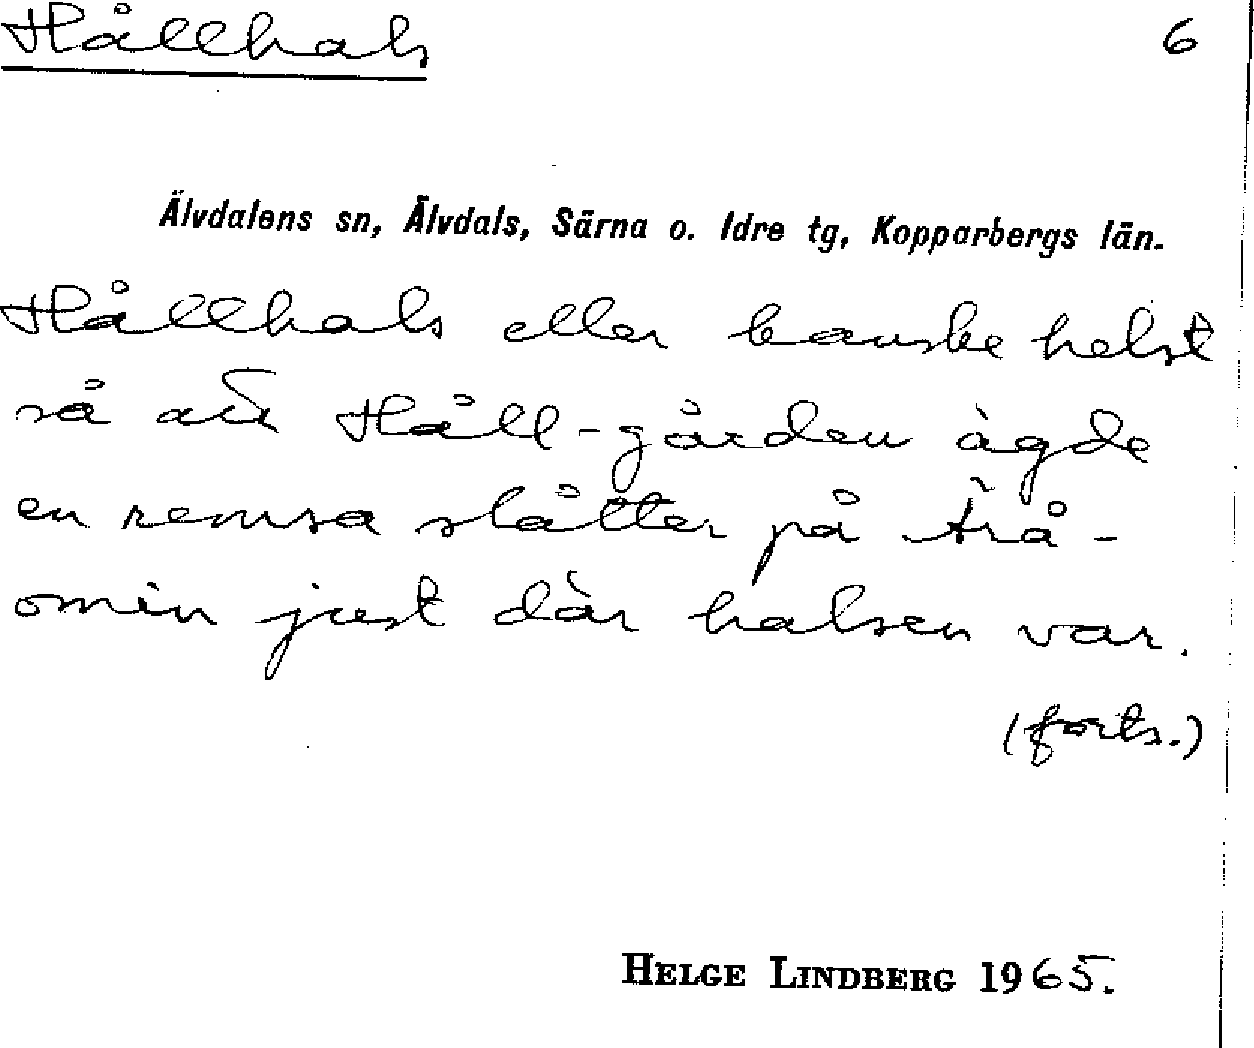 Hållhals 6
Älvdalens sn, Älvdals, Särna o. Idre tg, Kopparbergs län.
Hållhals eller kanske helst
så att Håll-gården ägde
en remsa slåtter på Trå-
ömin just där halsen var.
(forts.)
HELGE LINDBERG 1965.